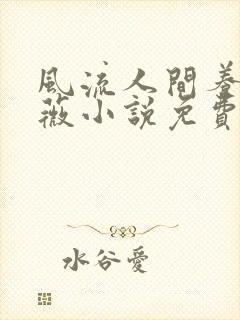 風流人間養
薇小說免費
水谷愛